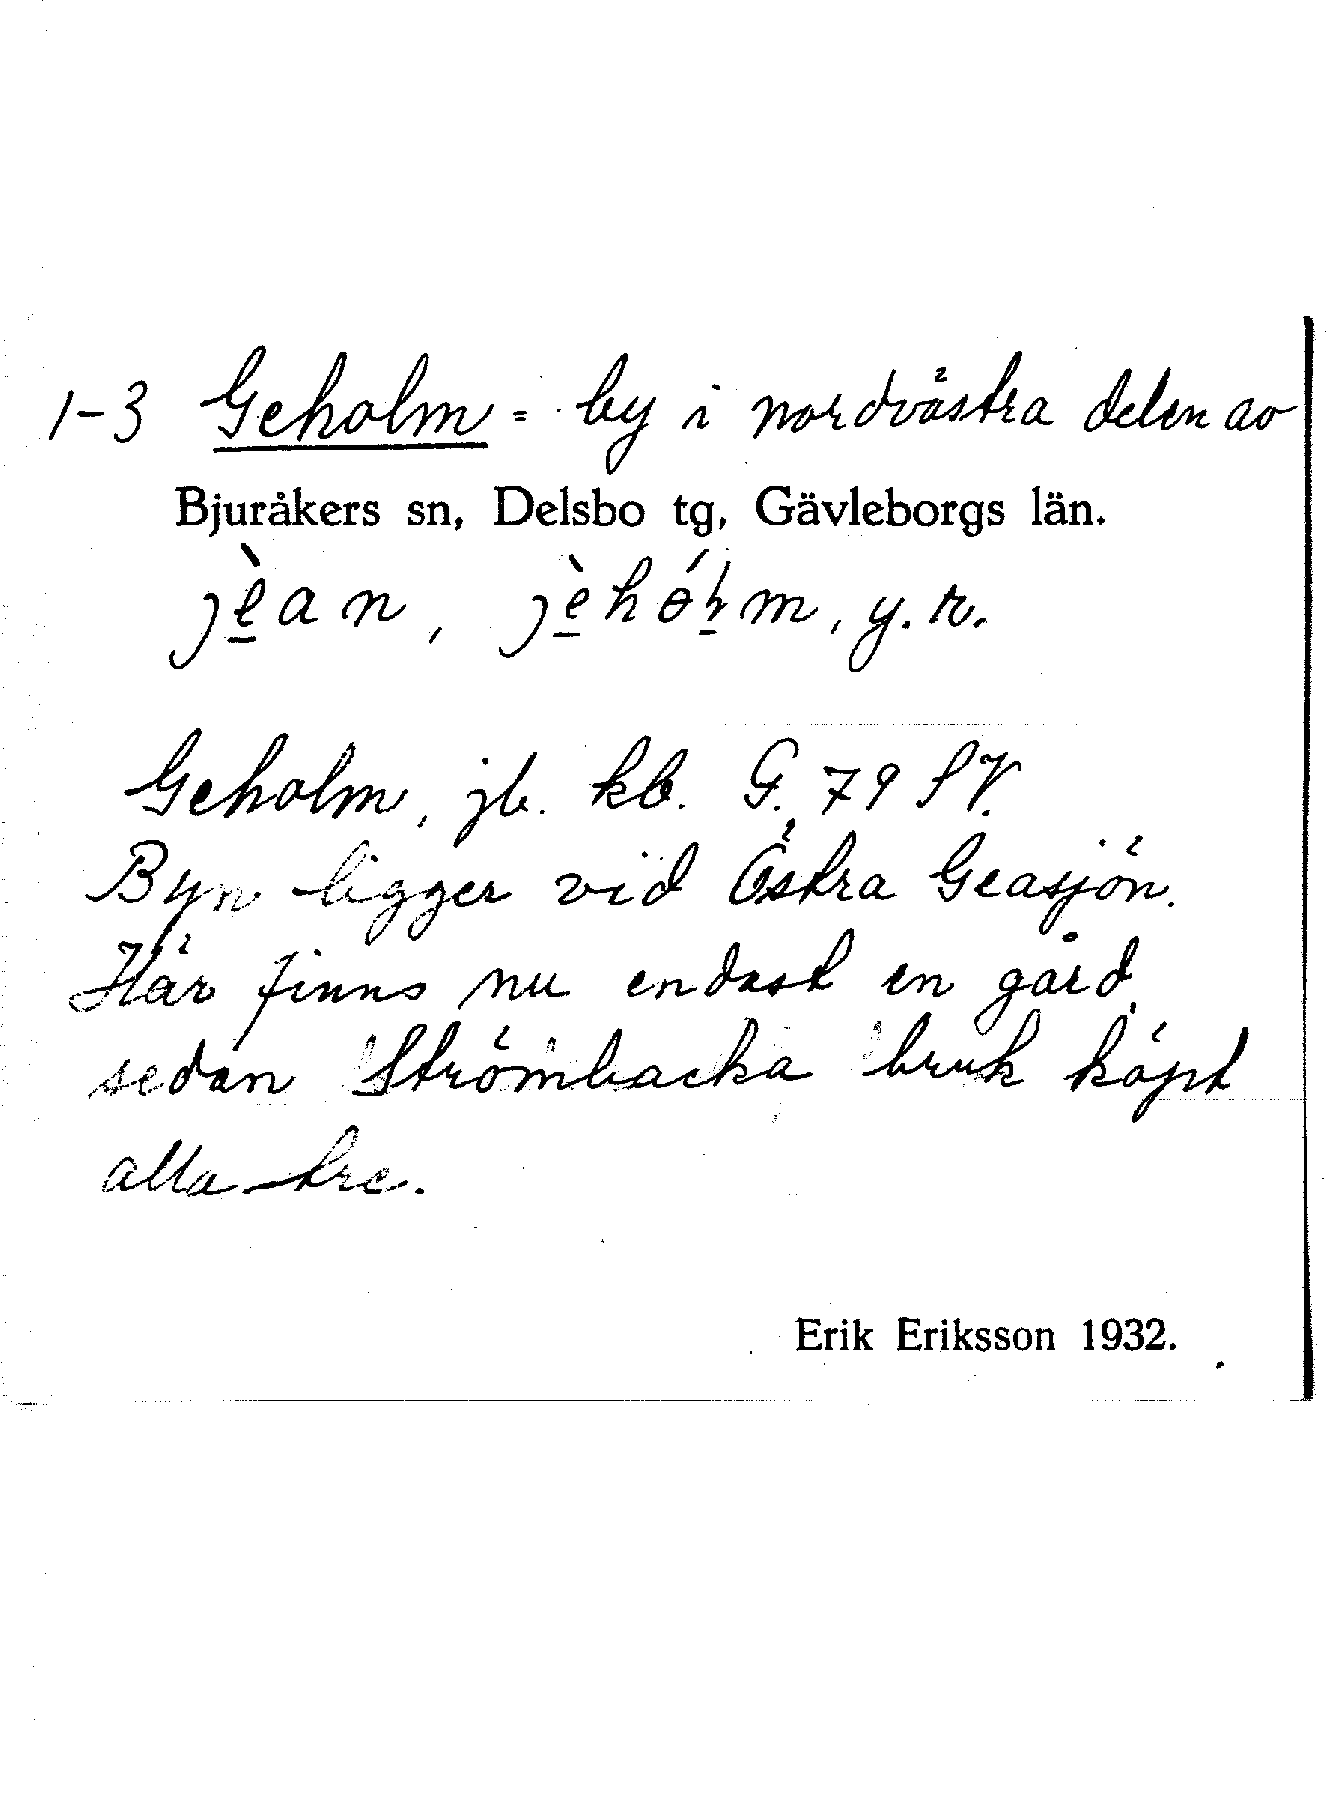 1-3 Geholm = by i nordvästra delen av
Bjuråkers sn, Delsbo tg, Gävleborgs län.
jèan, jèhóɫm, y.r.
Geholm, jb. kb. G. 79 SV.
Byn ligger vid Östra Geasjön.
Här finns nu endast en gård,
sedan Strömbacka bruk köpt
alla tre.
Erik Eriksson 1932.